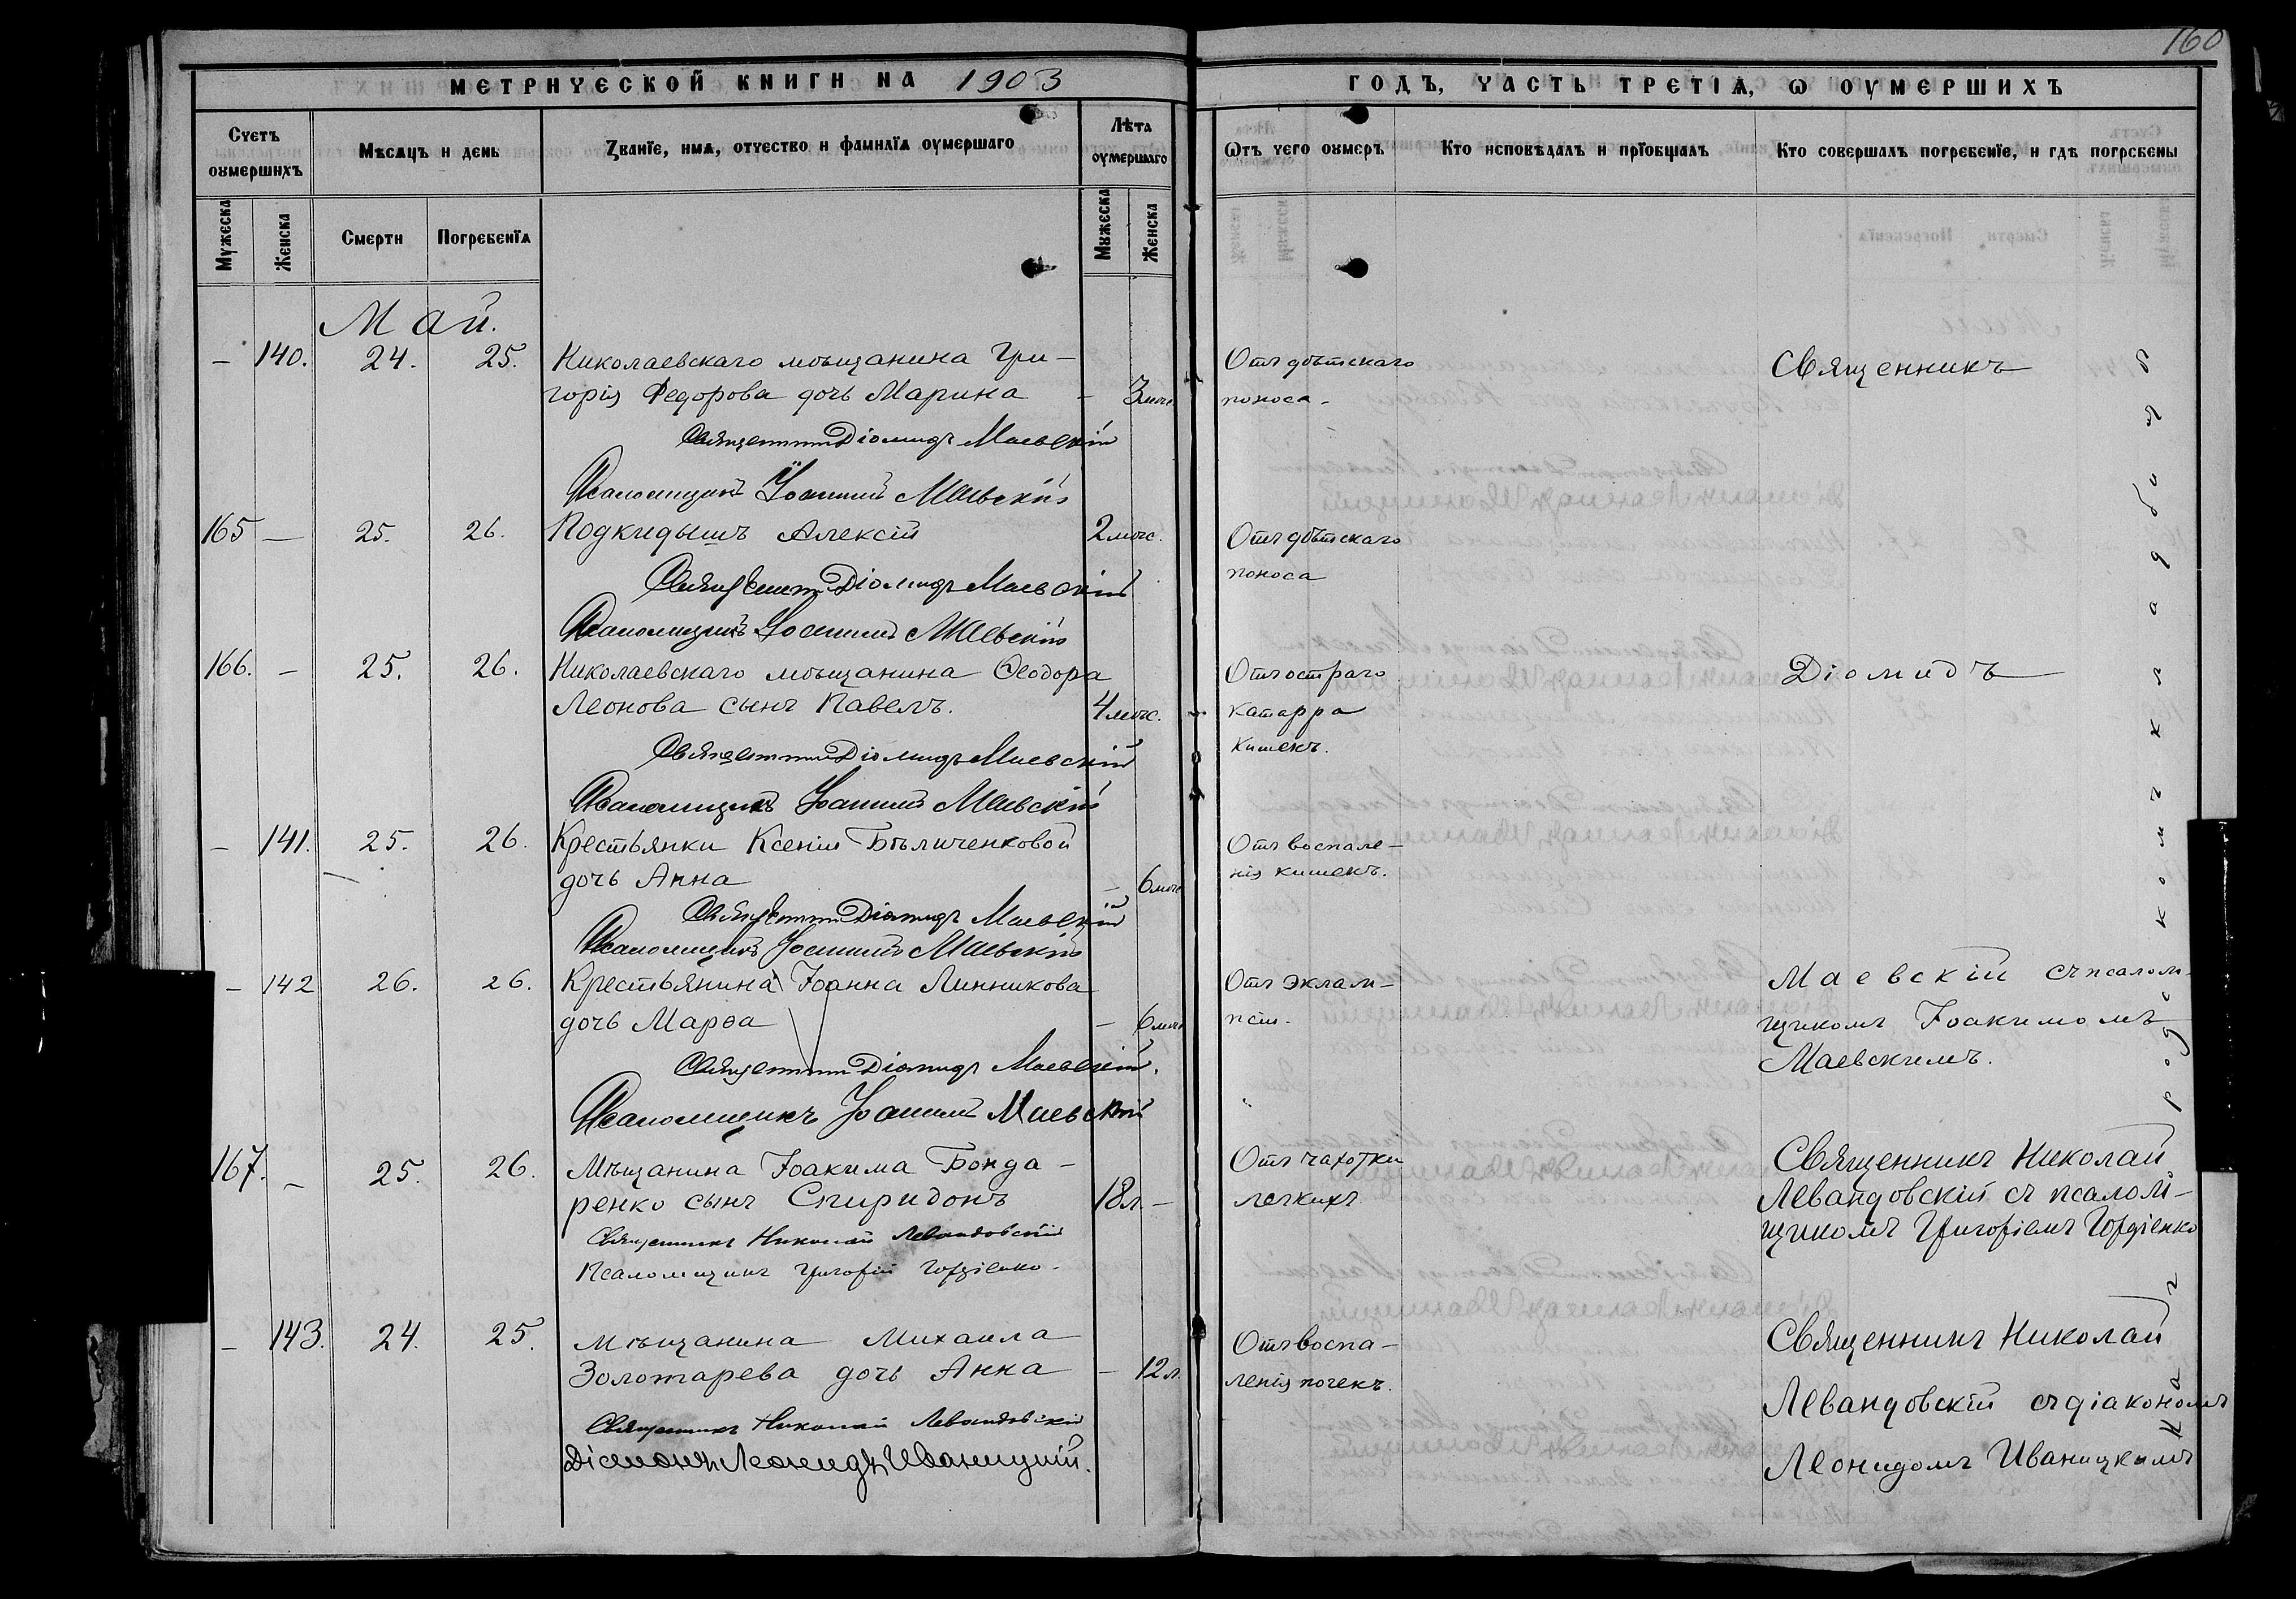 160
МЕТРИЧЕСКОЙ КНИГИ НА 1903
ГОДЪ, ЧАСТЬ ТРЕТІѦ, Ѡ ОУМЕРШИХЪ
Счетъ оумершихъ
Мѣсяцъ и день
Званїе, имѧ, отчество и фамилїѧ оумершаго
Лѣта оумершаго
Ѿтъ чего оумеръ
Кто исповѣдалъ и прїобщалъ
Кто совершалъ погребенїе, и гдѣ погребены
Мужеска
Женска
Смерти
Погребенїѧ
Мужеска
Женска
Май.
— 140. 24. 25. Николаевскаго мѣщанина Гри-
горія Федорова дочь Марина - 3 мѣс.
Отъ дѣтскаго
поноса.
Священникъ Діомидъ Маевскій
Псаломщикъ Іоакимъ Маевскій
165 — 25. 26. Подкидышъ Алексій 2 мѣс.
Отъ дѣтскаго
поноса
Священникъ Діомидъ Маевскій
Псаломщикъ Іоакимъ Маевскій
166. — 25. 26. Николаевскаго мѣщанина Ѳеодора
Леонова сынъ Павелъ. 4 мѣс.
Отъ остраго
катарра
кишекъ.
Священникъ Діомидъ Маевскій
Псаломщикъ Іоакимъ Маевскій
— 141. 25. 26. Крестьянки Ксеніи Бѣличенковой
дочь Анна — 6 мѣс
Отъ воспале-
нія кишекъ.
Священникъ Діомидъ Маевскій
Псаломщикъ Іоакимъ Маевскій
— 142 26. 26. Крестьянина Іоанна Линникова
дочь Марѳа — 6 мѣс
Отъ эклам-
псіи.
Священникъ Діомидъ Маевскій.
Псаломщикъ Іоакимъ Маевскій
Священникъ
Діомидъ
Маевскій съ псалом-
щикомъ Іоакимомъ
Маевскимъ.
167. — 25. 26. Мѣщанина Іоакима Бонда-
ренко сынъ Спиридонъ 18 л. —
Отъ чахотки
легкихъ
Священникъ Николай Левандовскій
Псаломщикъ Григорій Гордіенко.
Священникъ Николай
Левандовскій съ псалом-
щикомъ Григоріемъ Гордіенко
— 143. 24. 25. Мѣщанина Михаила
Золотарева дочь Анна — 12 л.
Отъ воспа-
ленія почекъ.
Священникъ Николай Левандовскій
Діаконъ Леонидъ Иваницкій.
Священникъ Николай
Левандовскій съ діакономъ
Леонидомъ Иваницкимъ
На городскомъ кладбищѣ